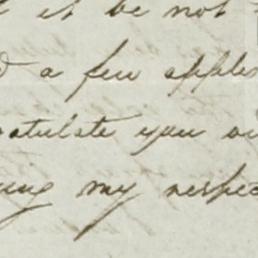 it be not
a few apples
ratulate you
my respec